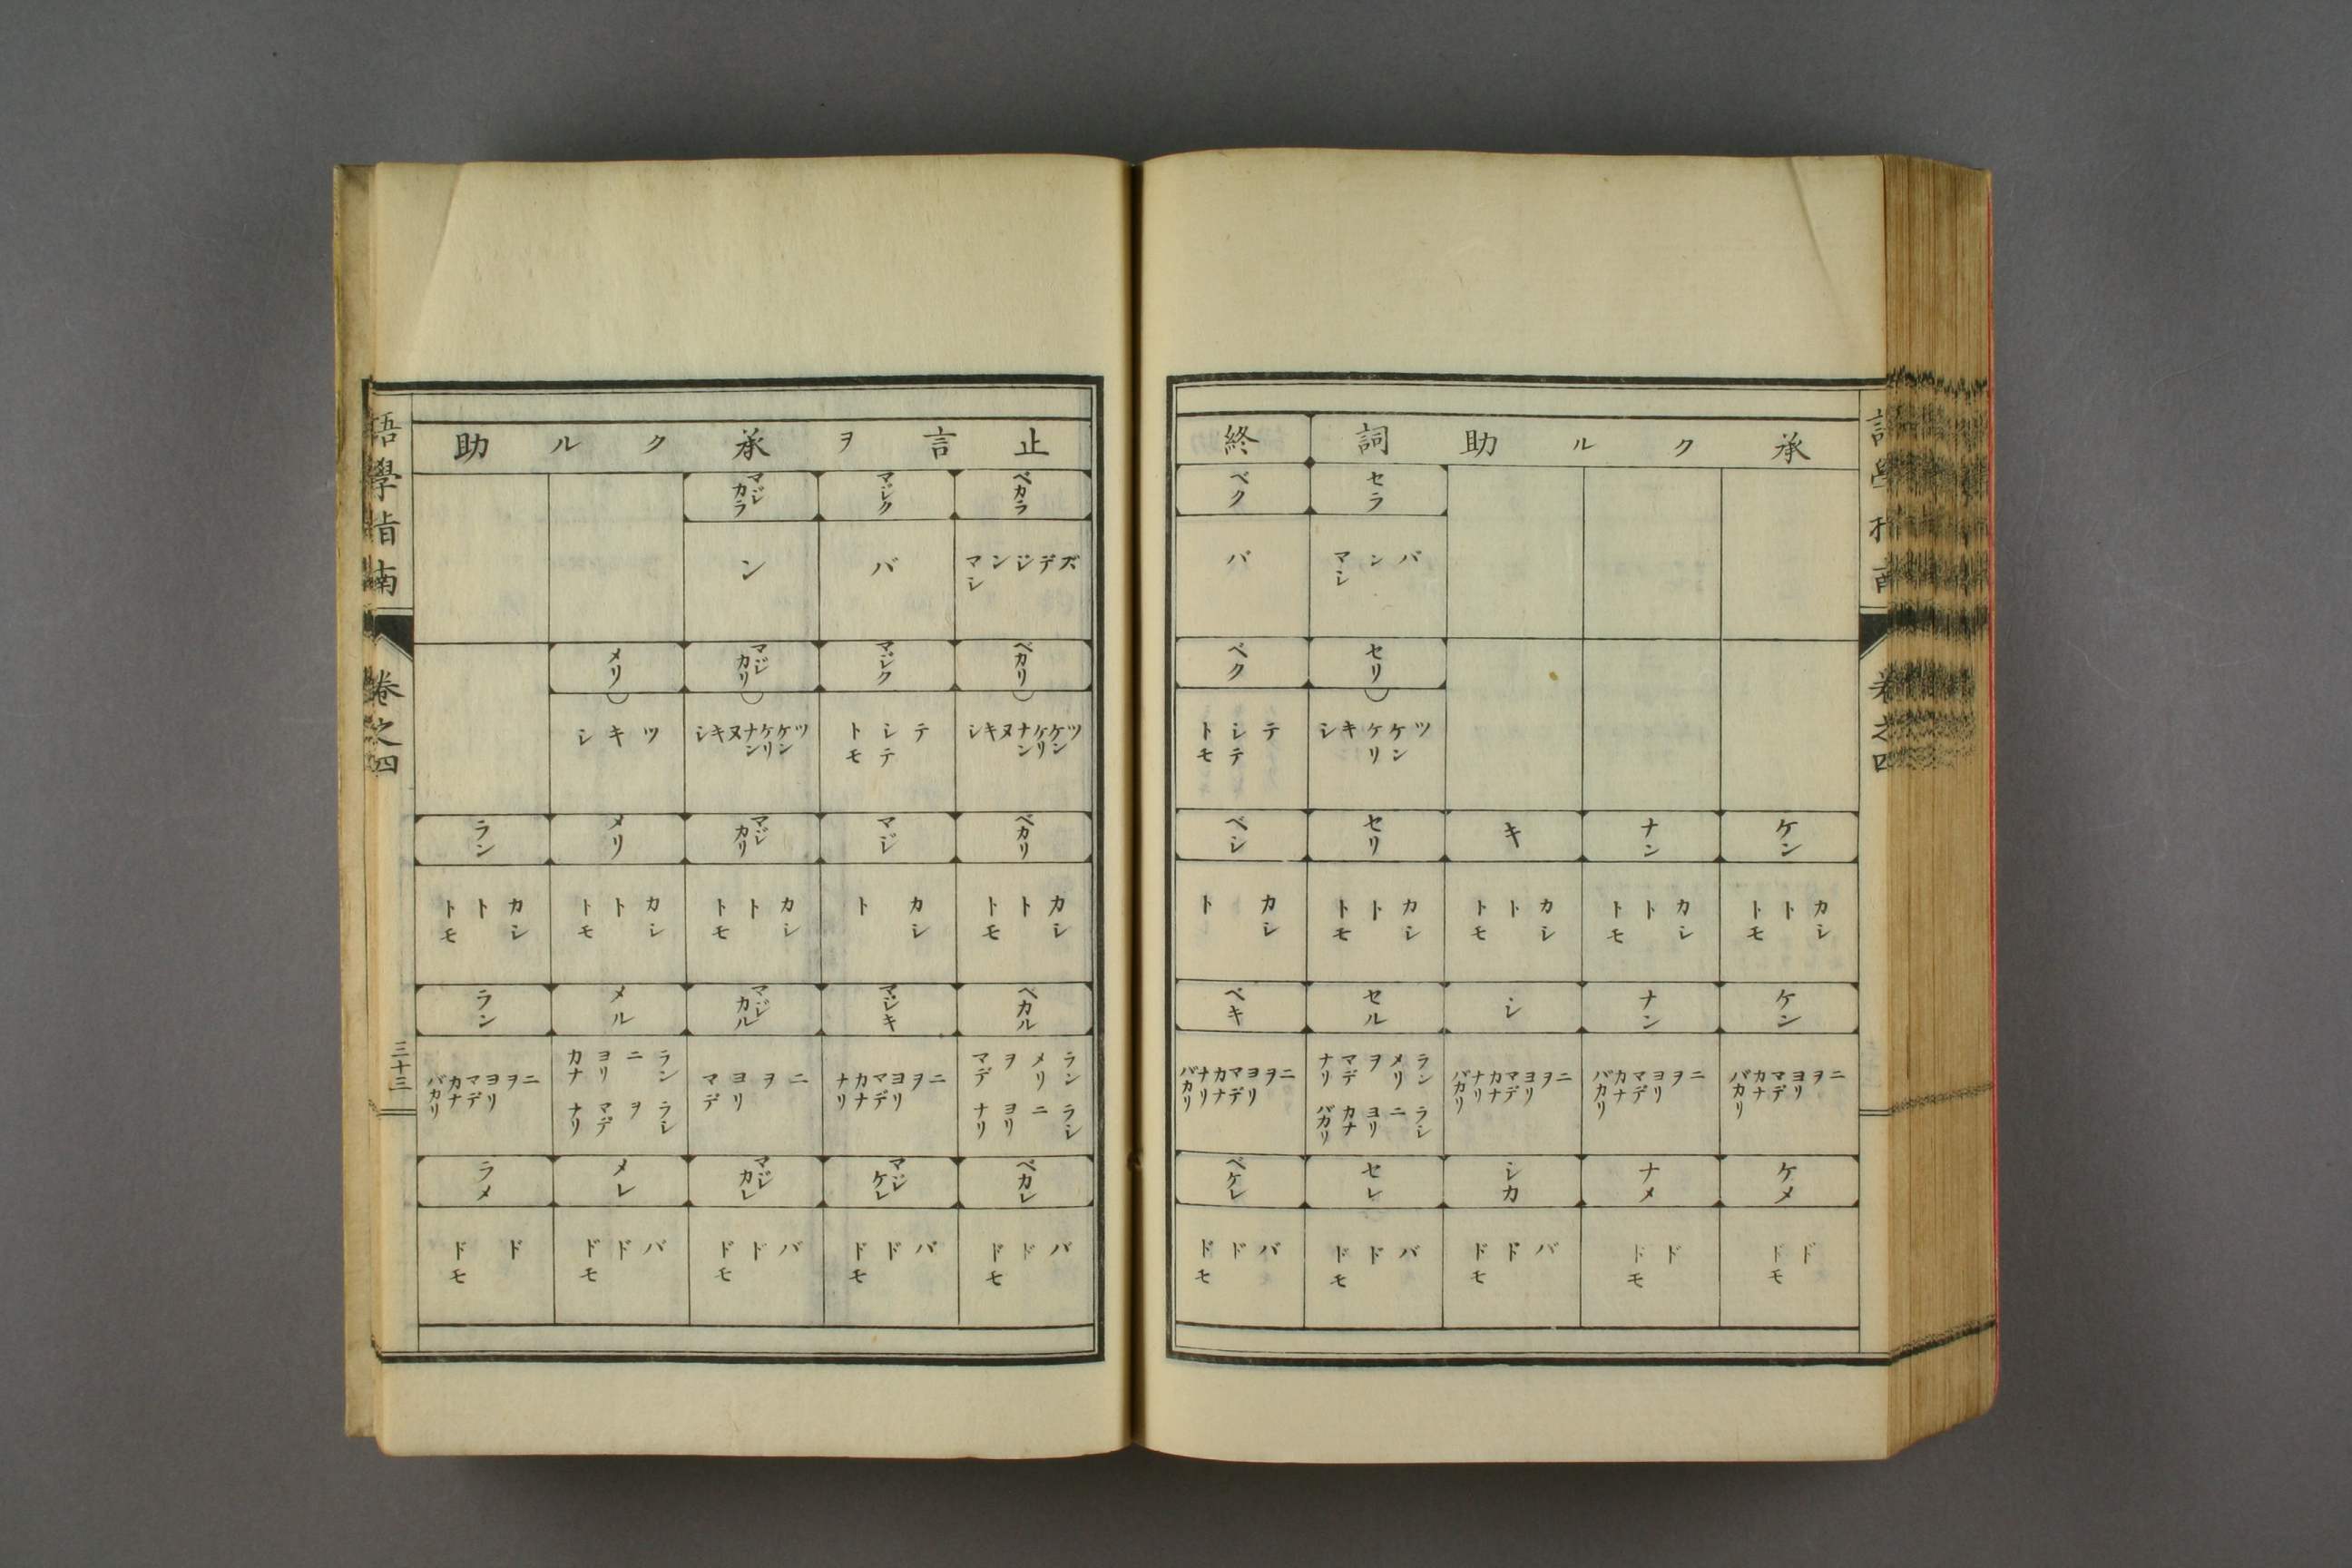 承クル助詞
ケン
カシ ト トモ
ケン
ニ ヲ ヨリ マデ カナ バカリ
ケメ
ド ドモ
ナン
カシ ト トモ
ナン
ニ ヲ ヨリ マデ カナ バカリ
ナメ
ド ドモ
キ
カシ ト トモ
シ
ニ ヲ ヨリ マデ カナ ナリ バカリ
シカ
バ ド ドモ
セラ
バ ン マシ
セリ
ツ ケン ケリ キ シ
セリ
カシ ト トモ
セル
ラン メリ ヲ マデ ナリ
ラシ ニ ヨリ カナ バカリ
セレ
バ ド ドモ
終
ベク
バ
ベク
テ シテ トモ
ベシ
カシ ト
ベキ
ニ ヲ ヨリ マデ カナ ナリ バカリ
ベケレ
バ ド ドモ
止言ヲ承クル助
ベカラ
ズ デ ジ ン マシ
ベカリ
ツ ケン ケリ ナン ヌ キ シ
ベカリ
カシ ト トモ
ベカル
ラン メリ ヲ マデ
ラシ ニ ヨリ ナリ
ベカレ
バ ド ドモ
マジク
バ
マジク
テ シテ トモ
マジ
カシ ト
マジキ
ニ ヲ ヨリ マデ カナ ナリ
マジケレ
バ ド ドモ
マジカラ
ン
マジカリ
ツ ケン ケリ ナン ヌ キ シ
マジカリ
カシ ト トモ
マジカル
ニ ヲ ヨリ マデ
マジカレ
バ ド ドモ
メリ
ツ キ シ
メリ
カシ ト トモ
メル
ラン ニ ヨリ カナ
ラシ ヲ マデ ナリ
メレ
バ ド ドモ
ラン
カシ ト トモ
ラン
ニ ヲ ヨリ マデ カナ バカリ
ラメ
ド ドモ
語學指南
卷之四
三十三